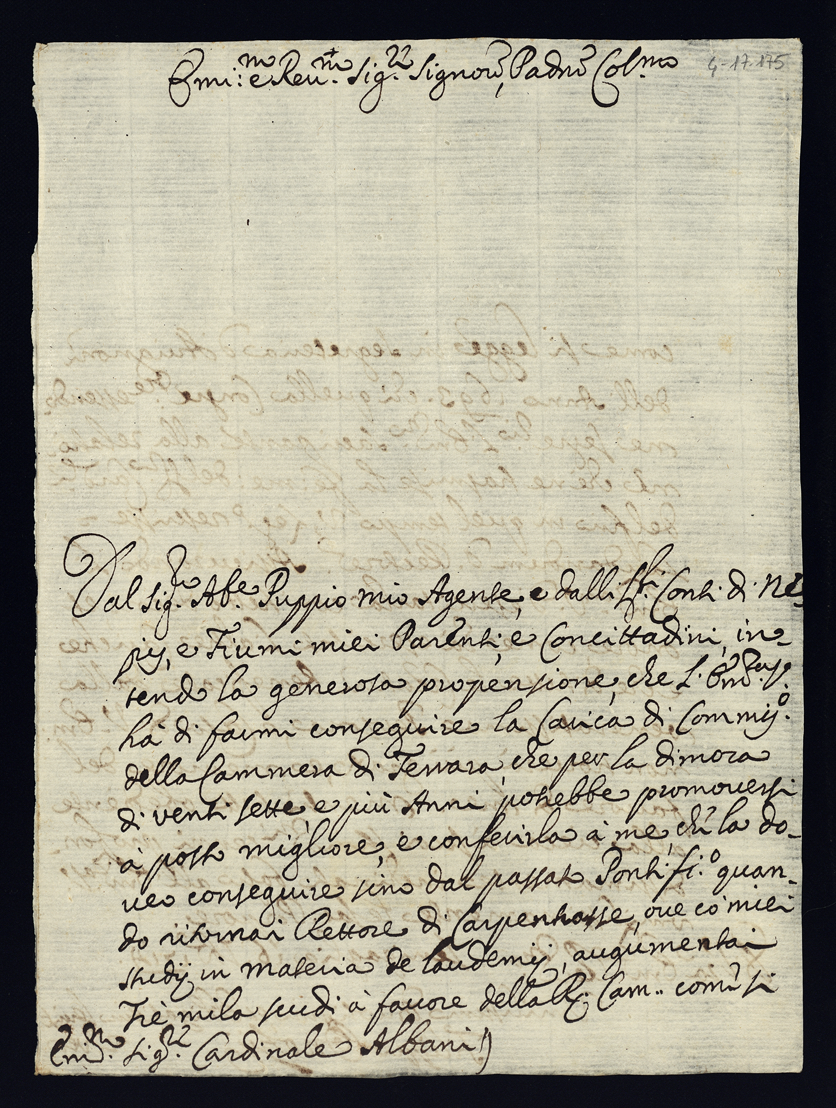 4-17-175
Emi:mo e Reu.mo Sig.r Signore, Padrō Col.mo
Dal Sig.r Ab.e Puppio mio Agente, e dalli SS.ri Conti di
pij, e Fiumi miei Parenti, e Concittadini, in-
tendo la generosa propensione, che L'Em.
hà di farmi conseguire la Carica di Commiss.o
della Cammera di Ferrara, che per la dimora
di venti sette e più Anni potrebbe promoversi
à posto migliore, e conferirla à me, chē la do-
veo conseguire sino dal passato Pontifi.o quan-
do ritornai Rettore di Carpentrasse, ove cō miei
studij in materia de laudemij, augumentai
Trè mila scudi à favore della R. Cam.. comē si
Emi.mo Sig.r Cardinale Albani)